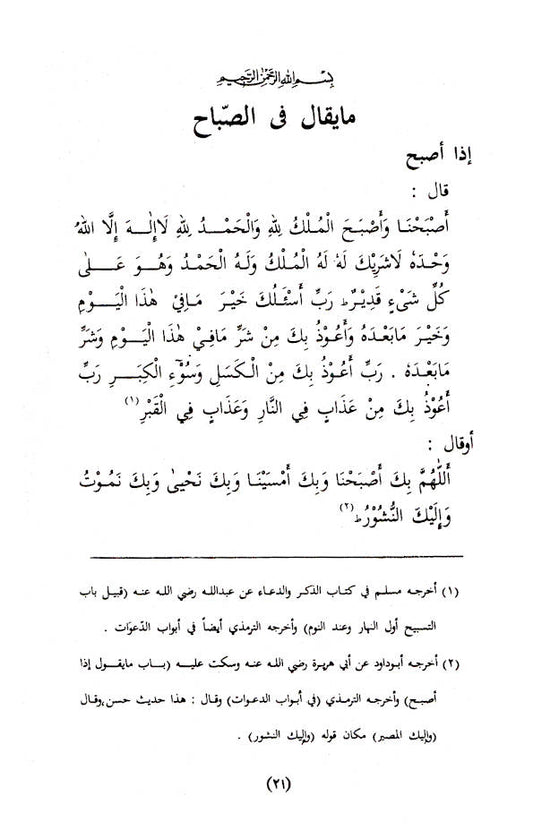 بِسْمِ اللهِ الرَّحْمٰنِ الرَّحِيمِ
مايقال فى الصّباح
إذا أصبح
قال :
أَصْبَحْنَا وَأَصْبَحَ الْمُلْكُ لِلّٰهِ وَالْحَمْدُ لِلّٰهِ لَاإِلٰهَ إِلَّا اللهُ
وَحْدَهٗ لَاشَرِيْكَ لَهٗ لَهُ الْمُلْكُ وَلَهُ الْحَمْدُ وَهُوَ عَلىٰ
كُلِّ شَىْءٍ قَدِيْرٌ ؕ رَبِّ أَسْئَلُكَ خَيْرَ مَافِيْ هٰذَا الْيَوْمِ
وَخَيْرَ مَابَعْدَهٗ وَأَعُوْذُ بِكَ مِنْ شَرِّ مَافِيْ هٰذَا الْيَوْمِ وَشَرِّ
مَابَعْدَهٗ . رَبِّ أَعُوْذُ بِكَ مِنَ الْكَسَلِ وَسُوْٓءِ الْكِبَرِ رَبِّ
أَعُوْذُ بِكَ مِنْ عَذَابٍ فِي النَّارِ وَعَذَابٍ فِي الْقَبْرِ(١)
أوقال :
أَللّٰهُمَّ بِكَ أَصْبَحْنَا وَبِكَ أَمْسَيْنَا وَبِكَ نَحْيىٰ وَبِكَ نَمُوْتُ
وَإِلَيْكَ النُّشُوْرُ ؕ(٢)
(١) أخرجه مسلم في كتاب الذكر والدعاء عن عبدالله رضي الله عنه (قبيل باب
التسبيح أول النهار وعند النوم) وأخرجه الترمذي أيضاً في أبواب الدّعوَات .
(٢) أخرجه أبوداود عن أبي هريرة رضي الله عنه وسكت عليه (باب مايقول إذا
أصبح) وأخرجه الترمذي (في أبواب الدعوات) وقال : هذا حديث حسن،وقال
(وإليك المصير) مكان قوله (وإليك النشور) .
(٢١)